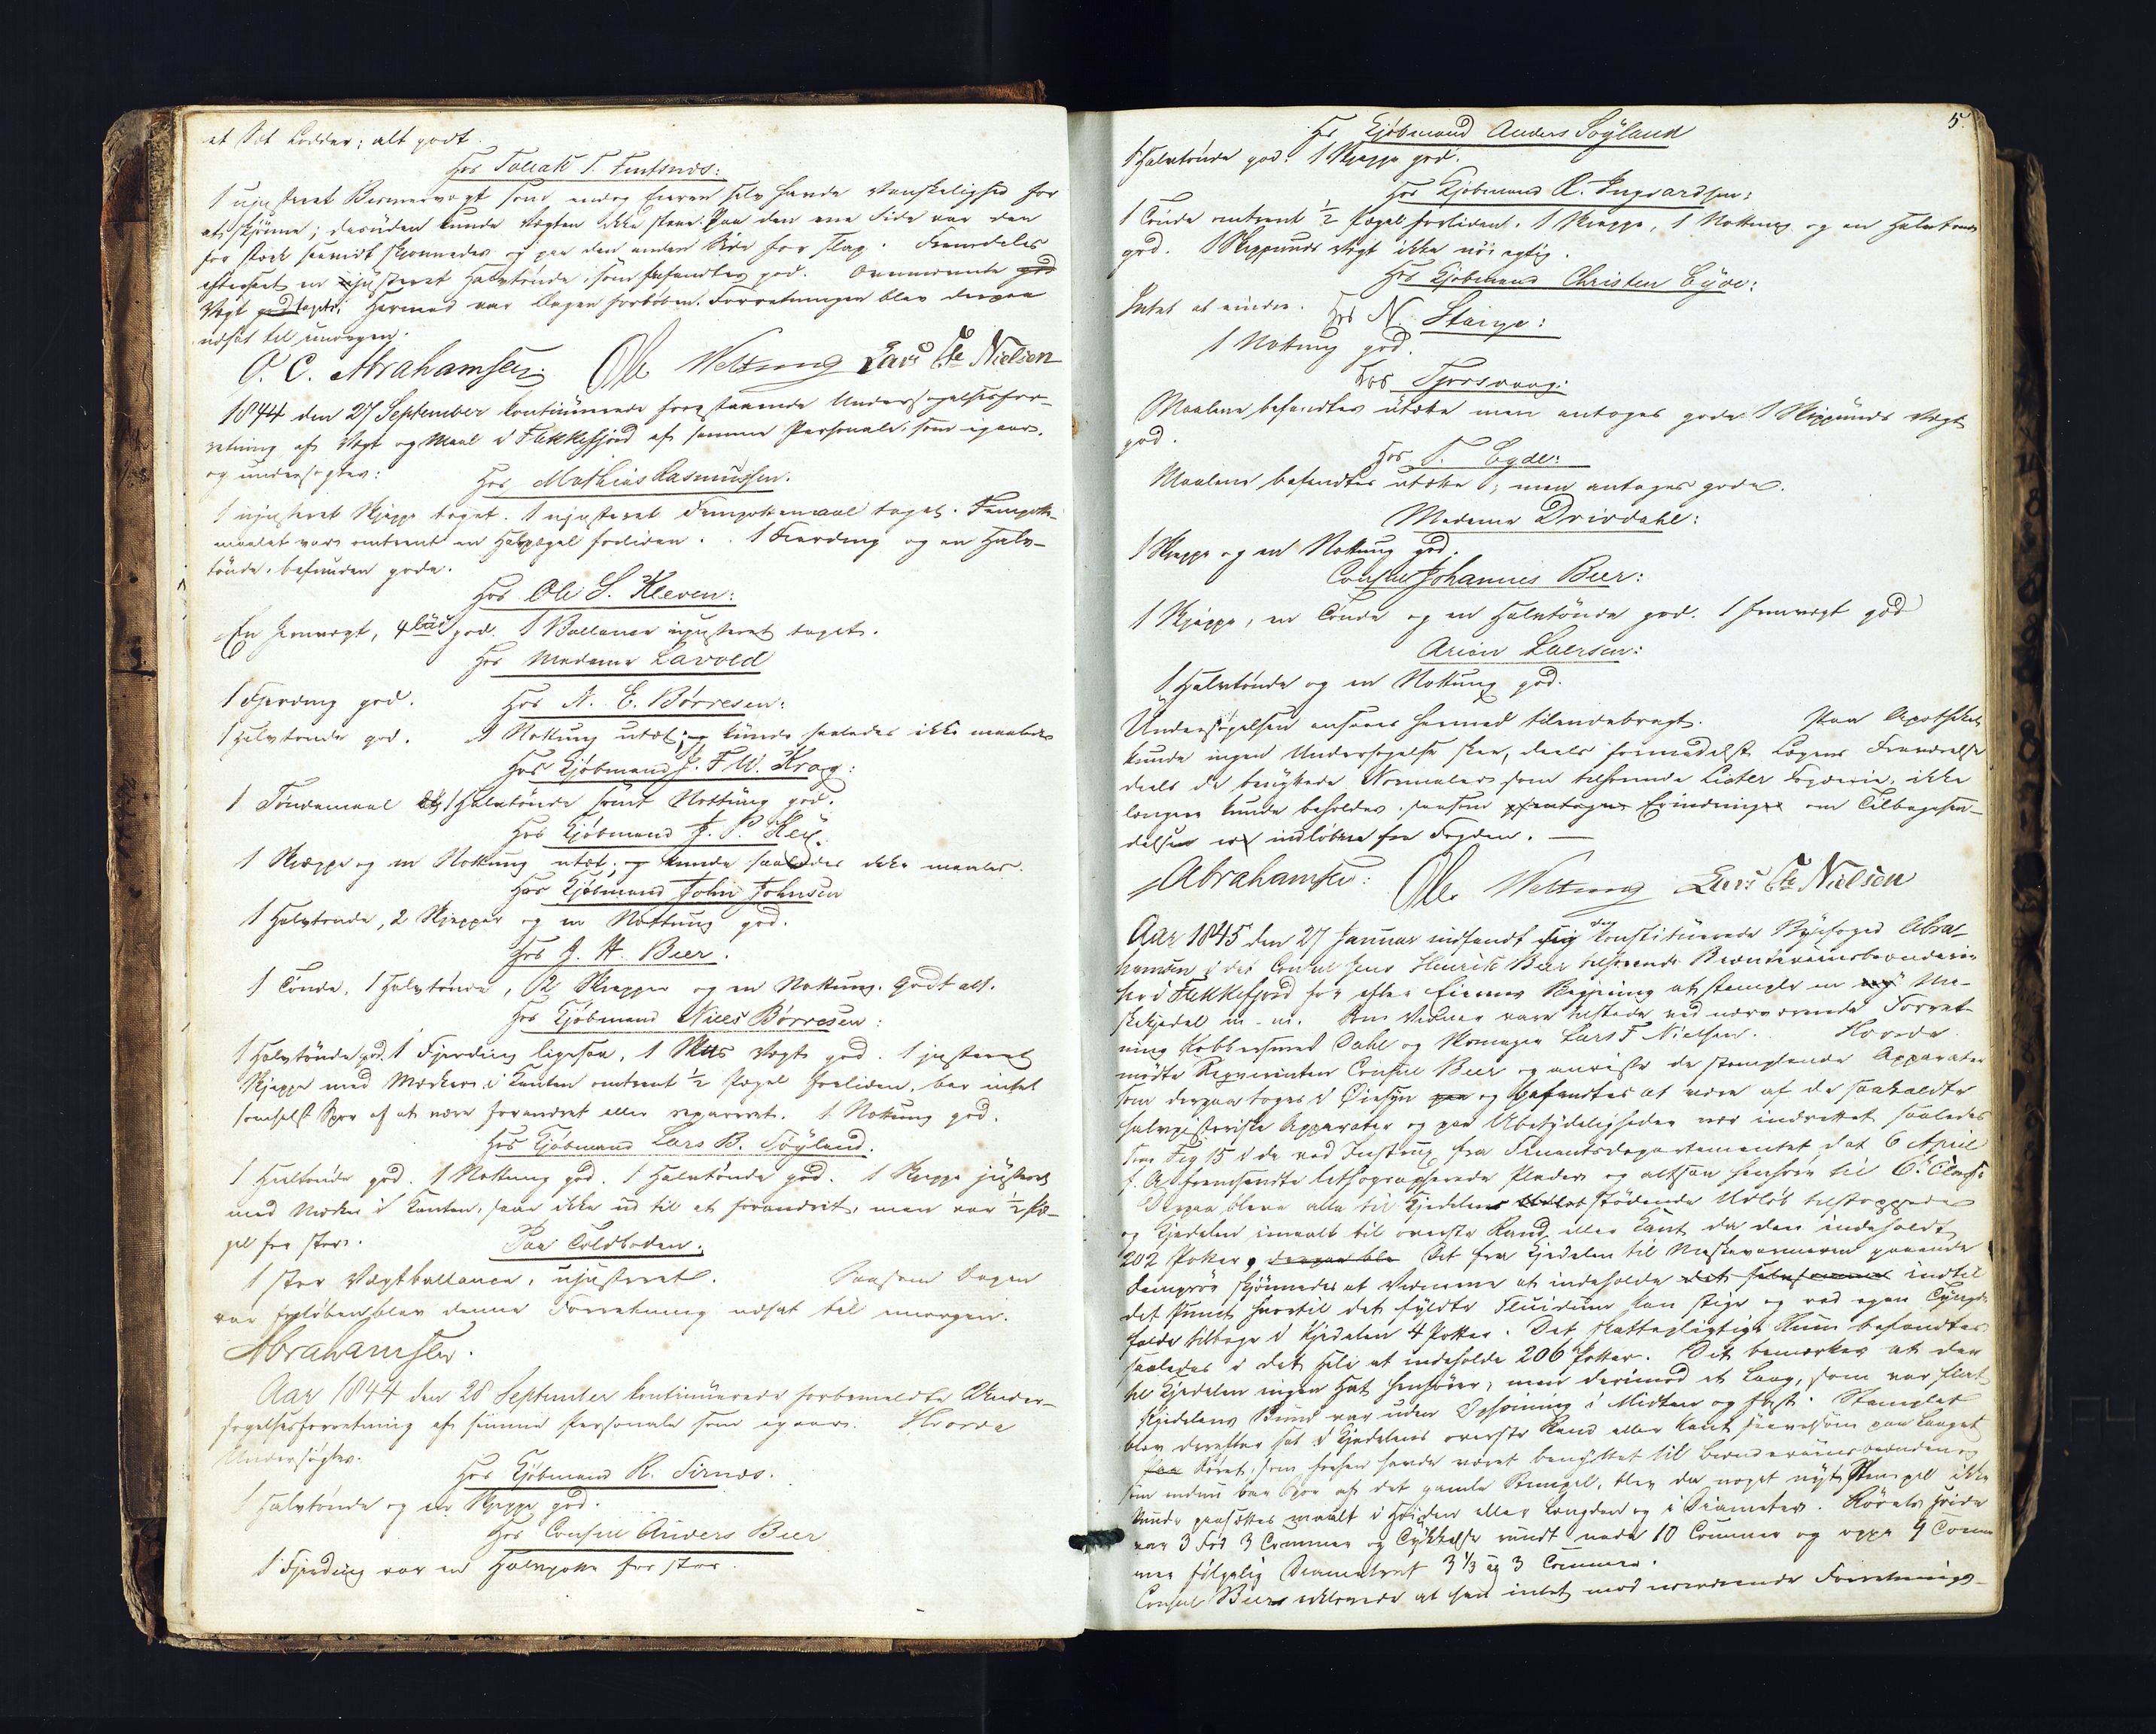 et Sæt Lodder; alt godt.
Hos Tolleak T. Fintsnes:
1 ujusteret Bismervægt som endog Eieren selv havde Vanskelighed for
at skjønne; desuden kunde Vægten ikke staae. Paa den ene Side var den
for stærk saavidt skjønnedes og paa den anden Side for slap. Fremdeles
efterseet en ujusteret Halvtønde, som befandtes god. Ovennævnte
Vægt toges. Hermed var Dagen forløben. Forretningen blev derpaa
udsat til imorgen.
O. C. Abrahamsen. Ole Weltzing Lars Fr Nielsen
1844 den 27 September continueredes foranstaaende Undersøgelsesfor-
retning af Vægt og Maal i Flekkefjord af samme Personale, som igaar,
og undersøgtes:
Hos Mathias Rasmussen.
1 ujusteret Skjeppe taget. 1 ujusteret Fempottemaal taget. Fempotte-
maalet var omtrent en Halvpægel forliden. 1 Fierding og en Halv-
tønde, befunden gode.
Hos Ole S. Kleven:
En Jernvægt, god. 1 Ballance ujusteret taget.
Hos Madame Lavold
1 Fjerding god.
Hos N. E. Børresen:
1 Halvtønde god. 1 Notting utæt; og kunde saaledes ikke maales
Hos Kjøbmand J. F. W. Krog:
1 Tøndemaal 1 Halvtønde samt Notting god.
Hos Kjøbmand J. P. Key.
1 Skjeppe og en Notting utæt; og kunde saaledes ikke maales.
Hos Kjøbmand John Johnsen
1 Halvtønde, 2 Skjepper og en Notting god.
Hos J. H. Beer.
1 Tønde, 1 Halvtønde, 2 Skjepper og en Notting. Godt alt.
Hos Kjøbmand Niels Børresen:
1 Halvtønde god. 1 Fjerding ligesaa, 1 Vægt god. 1 justeret
Skjeppe med Mærker i Kanten omtrent ½ Pægel forliden, bar intet
somhelst Spor af at være forandret eller repareret. 1 Notting god.
Hos Kjøbmand Lars B. Søyland.
1 Heeltønde god. 1 Notting god. 1 Halvtønde god. 1 Skjeppe justeret
med Mærker i Kanten, saae ikke ud til at forandret, men var ½ Pæ-
gel for stor.
Paa Toldboden:
1 stor Vægtballance, ujusteret. Saasom Dagen
var forløben blev denne Forretning udsat til imorgen.
Abrahamsen.
Aar 1844 den 28 September continueredes forbemeldte Under-
søgelsesforretning af samme Personale som igaar: Hvorda
Undersøgtes.
Hos Kjøbmand R. Sirnes.
1 Halvtønde og en Skjeppe god.
Hos Consul Anders Beer
1 Fjerding var en Halvpotte for stor.
5.
Hos Kjøbmand Anders Søyland
1 Halvtønde god. 1 Skjeppe god.
Hos Kjøbmand A. Ingvardsen:
1 Tønde omtrent ½ Pægel forliden. 1 Skjeppe, 1 Notting og en Halvtønde
god. 1 Skippunds Vægt ikke nøiagtig.
Hos Kjøbmand Christen Eyde:
Intet at erindre.
Hos N. Stange:
1 Notting god.
Hos Tjorsvaag:
Maalene befandtes utætte men antoges gode. 1 Skippunds Vægt
god.
Hos T. Eyde:
Maalene befandtes utætte; men antoges gode.
Madame Drivdahl:
1 Skjeppe og en Notting god.
Consul Johannes Beer:
1 Skjeppe, en Tønde og en Halvtønde god. 1 Jernvægt god
Arion Laersen:
1 Halvtønde og en Notting god.
Undersøgelsen ansaaes hermed tilendebragt. Paa Apotheket
kunde ingen Undersøgelse skee, deels formedelst Lægens Fraværelse
deels da benyttede Normaler som tilhørende Lister Fogderie, ikke
længere kunde beholdes, saasom Erindringer om Tilbagesen-
delsen indløbne fra Fogden. —
Abrahamsen: Ole Weltzing Lars Fr Nielsen
Aar 1845 den 27 Januar indfandt sig den constituerede Byfoged Abra-
hamsen i det Consul Jens Henrik Beer tilhørende Brændeviinsbrænderie
her i Flekkefjord for efter Eierens Begjering at stemple en ny Me-
skekjedel m. m. Som Vidner vare tilstede ved nærværende Forret-
ning Kobbersmed Dahl og Skomager Lars F Nielsen. Hvorda
mødte Reqvirenten Consul Beer og anviste de stemplende Apparater
som derpaa toges i Øiesyn og befandtes at være af de saakaldte
halvpistoriske Apparater og paa Ubetydeligheder nær indrettet saaledes
som Fig 15 i de ved Instrux fra Finantsdepartementet dat 6 April
f. A. fremsendte lithographerede Plader og altsaa henhører til 6te Classe
Derpaa bleve alle til Kjedelen stødende Udløb tilstoppede
og Kjedelen imaalt til øverste Rand eller Kant da den indeholdt
202 Potter, Det fra Kjedelen til Meskevarmeren gaaende
Damprør skjønnedes at Vidnerne at indeholde indtil
det Punct hvortil det fyldte Fluidum kan stige og ved egen Tyngde
falde tilbage i Kjedelen 4 Potter. Det skattepligtige Rum befandtes
saaledes i det hele at indeholde 206 Potter. Det bemærkes at der
til Kjedelen ingen Hat henhører; men derimod et Laag, som var flat
Kjedelens Bund var uden Ophøining i Midten og fast. Stemplet
blev derefter sat i Kjedelens øverste Rand eller Kant saavelsom paa Laaget
Røret, som forhen havde været benyttet til brændeviinsbrænden og
som endnu bar Spor af det gamle Stempel, blev da noget nyt Stempel ikke
kunde paasættes maalt i Høiden eller Længden og i Diameter. Rørets Høide
var 3 Fod 3 Tommer og Tykkelse rundt nede 10 Tommer og oppe 9 Tom-
mer følgelig Diametret 3 1/3 og 3 Tommer.
Consul Beer erklærede at han intet mod nærværende Forretnings-